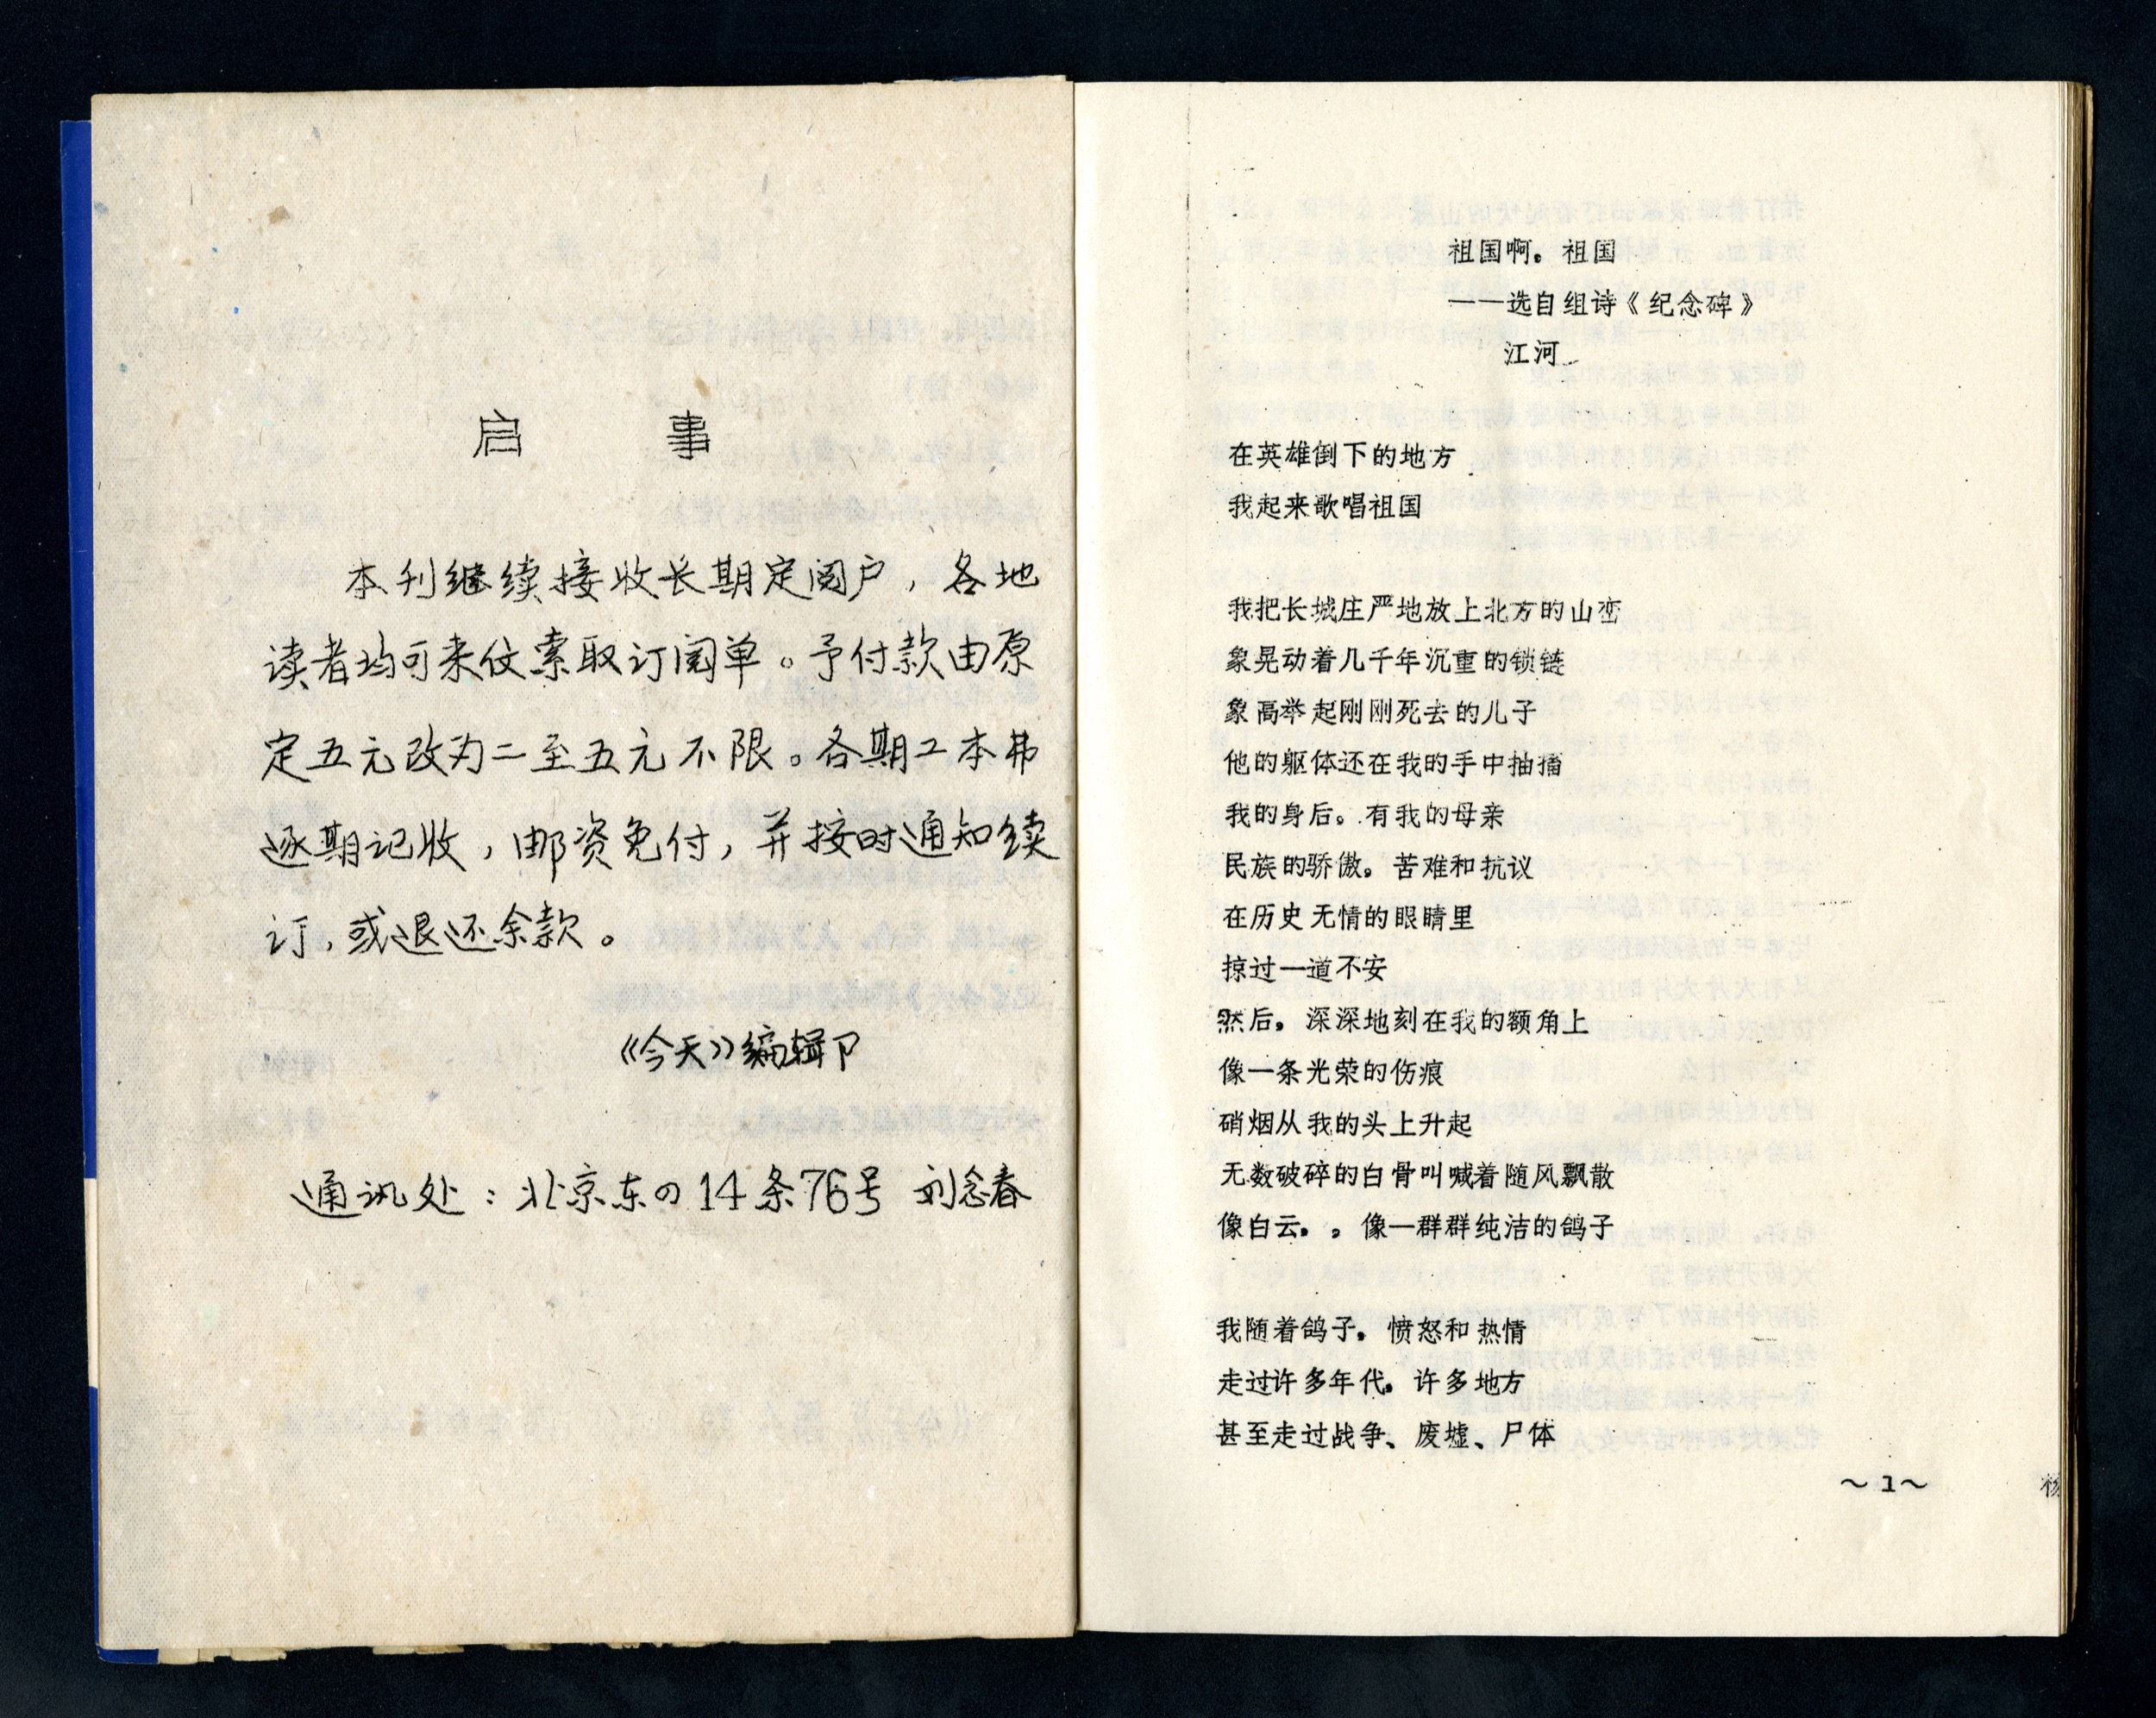 启 事
本刊继续接收长期定阅户，各地
读者均可来仪索取订阅单。予付款由原
定五元改为二至五元不限。各期工本弗
逐期记收，邮资免付，并按时通知续
订，或退还余款。
《今天》编辑卩
通讯处：北京东四14条76号 刘念春
祖国啊。祖国
——选自组诗《纪念碑》
江河
在英雄倒下的地方
我起来歌唱祖国
我把长城庄严地放上北方的山峦
象晃动着几千年沉重的锁链
象高举起刚刚死去的儿子
他的躯体还在我的手中抽搐
我的身后。有我的母亲
民族的骄傲。苦难和抗议
在历史无情的眼睛里
掠过一道不安
然后。深深地刻在我的额角上
像一条光荣的伤痕
硝烟从我的头上升起
无数破碎的白骨叫喊着随风飘散
像白云。。像一群群纯洁的鸽子
我随着鸽子。愤怒和热情
走过许多年代。许多地方
甚至走过战争、废墟、尸体
～1～